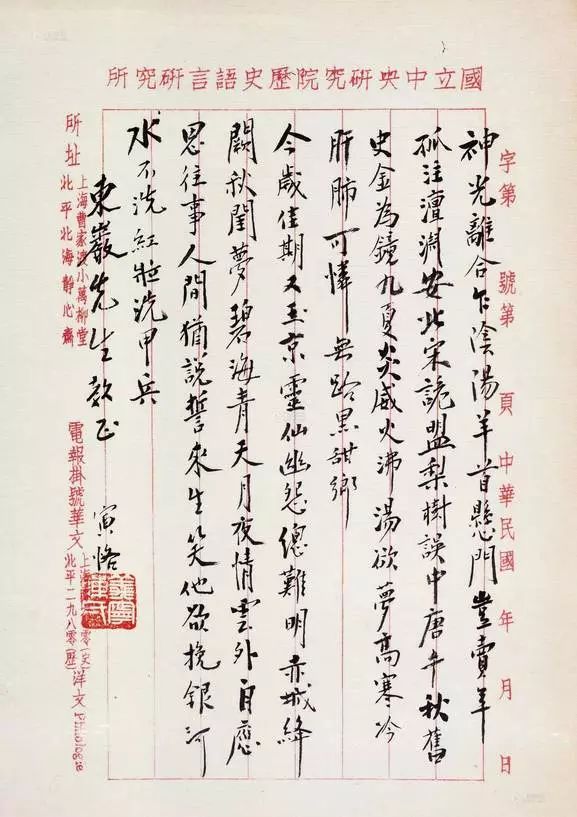 國立中央研究院歷史語言研究所
字第 號第 頁 中華民國 年 月 日
神光離合乍陰陽羊首懸門豈賣羊
孤注澶淵安北宋詭盟梨樹誤中唐千秋舊
史金為鏡九夏炎威火沸湯欲夢高寒冷
肝肺可憐無路黑甜鄉
今歲佳期又玉京靈仙幽怨總難明赤城絳
闕秋閨夢碧海青天月夜情雲外自應
思往事人間猶說誓來生笑他欲挽銀河
水不洗紅妝洗甲兵
東巖先生教正 寅恪
所址
上海曹家渡小萬柳堂
北平北海靜心齋
電報掛號華文
北平二九八零(歷)
洋文